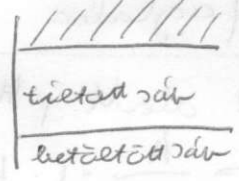 tiltott sáv
betöltött sáv